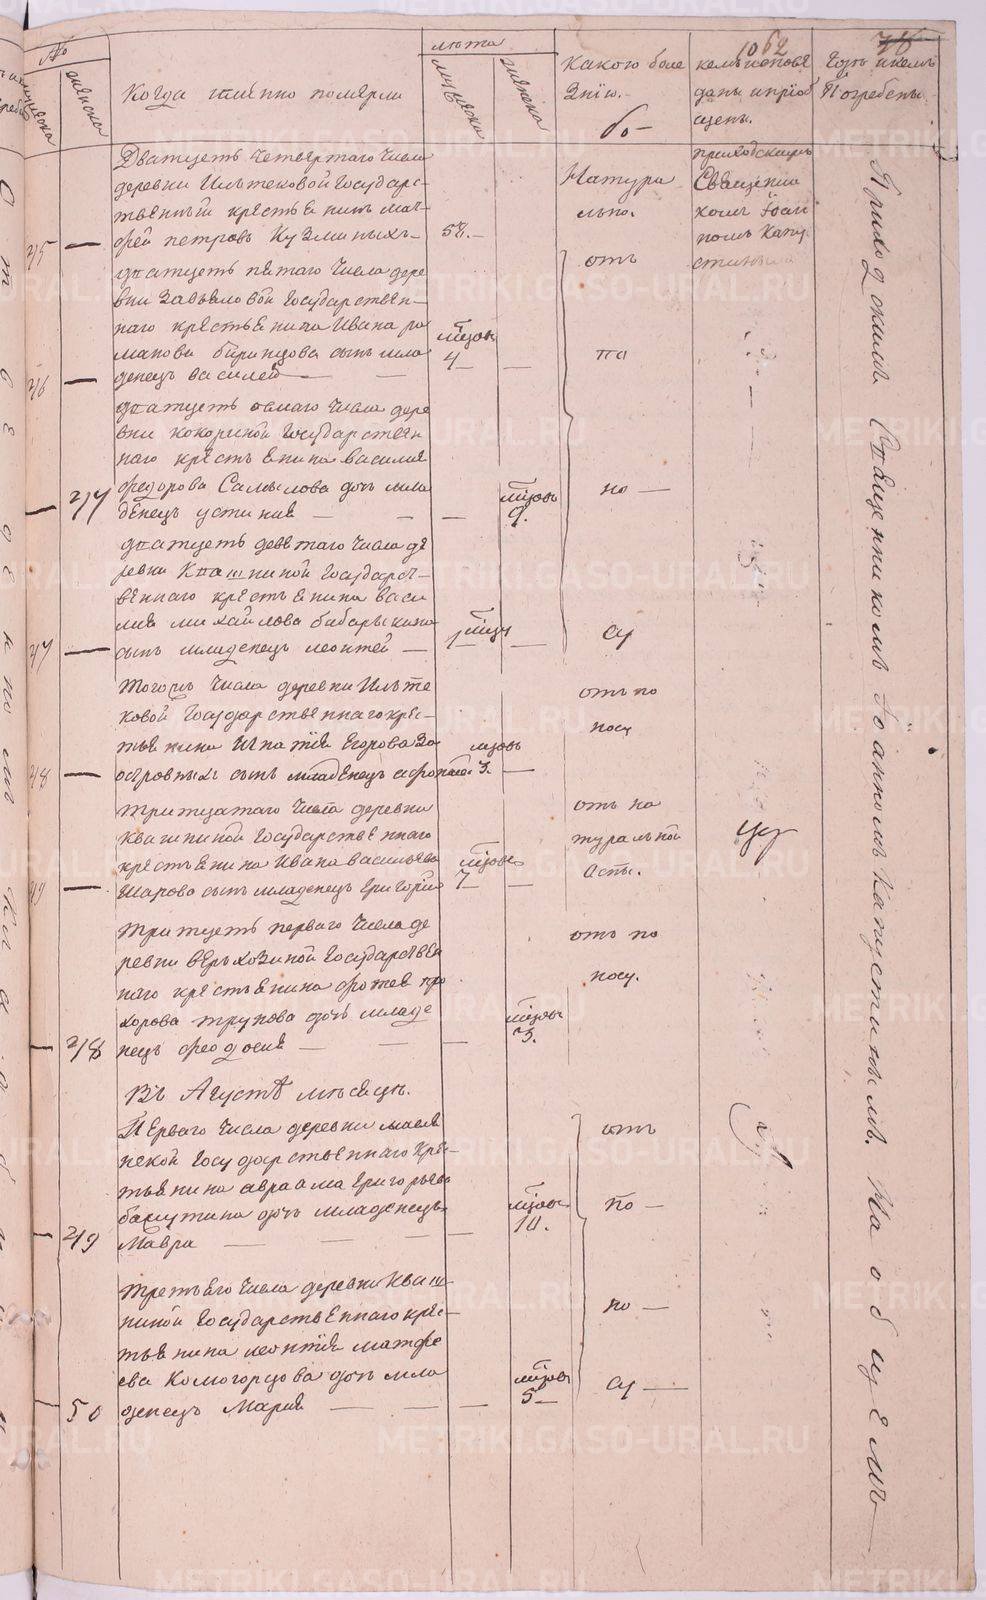 1062
№
лѣта
мужеска
женска
Когда именно померли
мужеска
женска
Какого боле
знію.
кемъ исповѣ
даны и пріоб
щены.
Гдѣ и кемъ
Погребены.
Дватцеть четвертаго числа
деревни
Государс-
твенный крестьянинъ Мат-
45
—
фей Петровъ Кузминыхъ
58.—
Натура
льно.
приходскимъ
Священни
комъ Іоан
номъ Капу
стинымъ
дватцеть пятаго числа дере
вни Завьяловой Государствен-
наго крестьянина Ивана Ро
манова сынъ мла
46
—
денецъ Василей —
мѣсяцовъ
4—
—
отъ
по
дватцеть осмаго числа дере
вни Кокориной Государствен
наго крестьянина Василия
Федорова Самылова дочь мла
—
27
денецъ Устиния —
—
мѣсяцовъ
9.
но —
дватцеть девятаго числа де
ревни Квашниной Государст-
веннаго крестьянина Васи
лия Михайлова Бабарыкина
47
—
сынъ младенецъ Леонтей —
1 мѣсяцъ
—
су
Тогожъ числа деревни
ковой Государственнаго крес-
тьянина Игнатия Егорова За
48
—
островныхъ сынъ младенецъ
мѣсяцовъ
3.
—
отъ по
носу
Тритцатаго числа деревни
Квашниной Государственнаго
крестьянина Ивана Васильева
49
—
Шарова сынъ младенецъ Григорий
мѣсяцовъ
7—
—
отъ на
туральной
оспы.
Тритцеть перваго числа де
ревни Верхозиной Государствен
наго крестьянина Фотея Про
хорова Трунова дочь младе
—
28
нецъ Феодосия —
—
мѣсяцовъ
3.
отъ по
носу.
Въ Августѣ мѣсяцѣ.
Перваго числа деревни
ской Государственнаго крес-
тьянина Авраама Григорьева
дочь младенецъ
—
29
Мавра —
—
мѣсяцовъ
10.
отъ
по —
Третьяго числа деревни Кваш
ниной Государственнаго крес-
тьянина Леонтия Матфе
ева Комогорцова дочь мла
—
50
денецъ Мария —
—
мѣсяцовъ
5—
но —
су —
Приходскимъ Священникомъ Іоанномъ Капустинымъ. На общемъ
METRIKI.GASO-URAL.RU